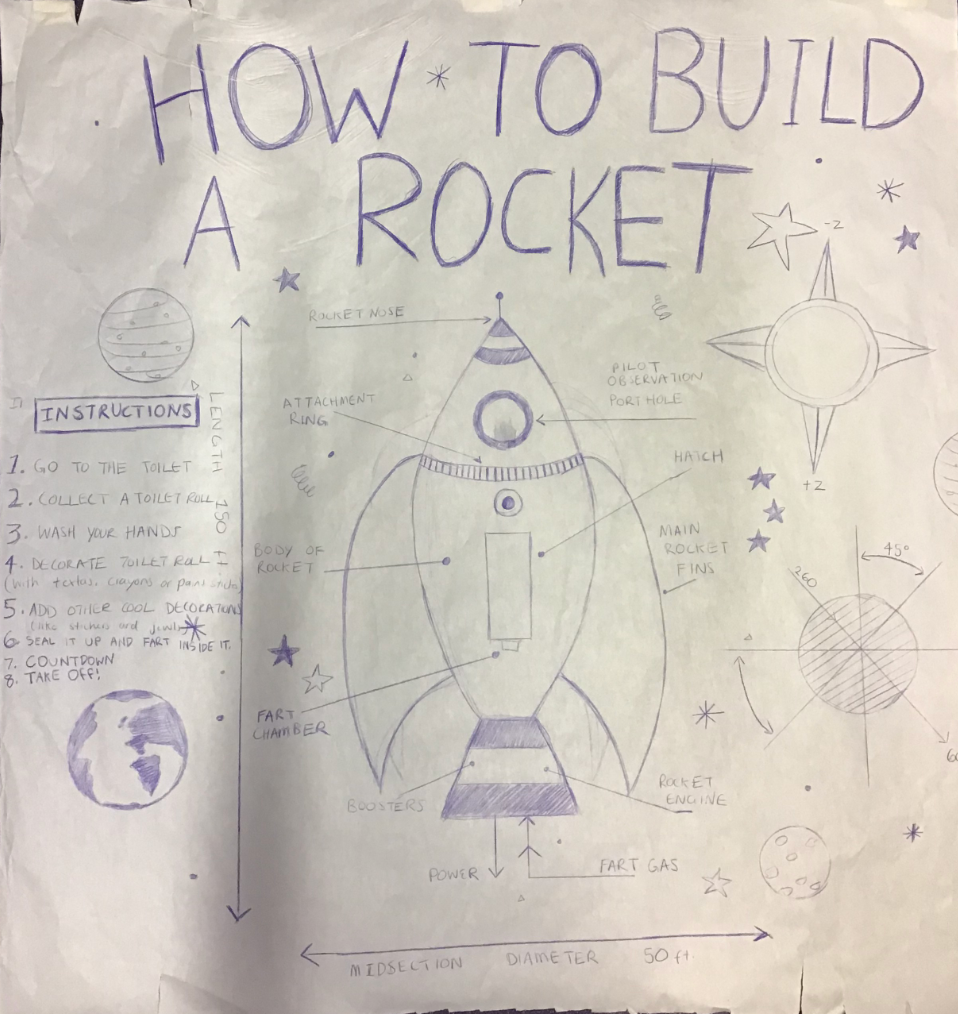 HOW TO BUILD
A ROCKET
-2
+2
ROCKET NOSE
PILOT
OBSERVATION
PORTHOLE
ATTACHMENT
RING
HATCH
MAIN
ROCKET
FINS
BODY OF
ROCKET
FART
CHAMBER
BOOSTERS
ROCKET
ENGINE
POWER
FART GAS
LENGTH 150 ft
MIDSECTION DIAMETER 50 ft
INSTRUCTIONS
1. GO TO THE TOILET
2. COLLECT A TOILET ROLL
3. WASH YOUR HANDS
4. DECORATE TOILET ROLL
(with textas, crayons or paint
5. ADD OTHER COOL DECORATIONS
(like stickers and
6. SEAL IT UP AND FART INSIDE IT.
7. COUNTDOWN
8. TAKE OFF!
45°
260